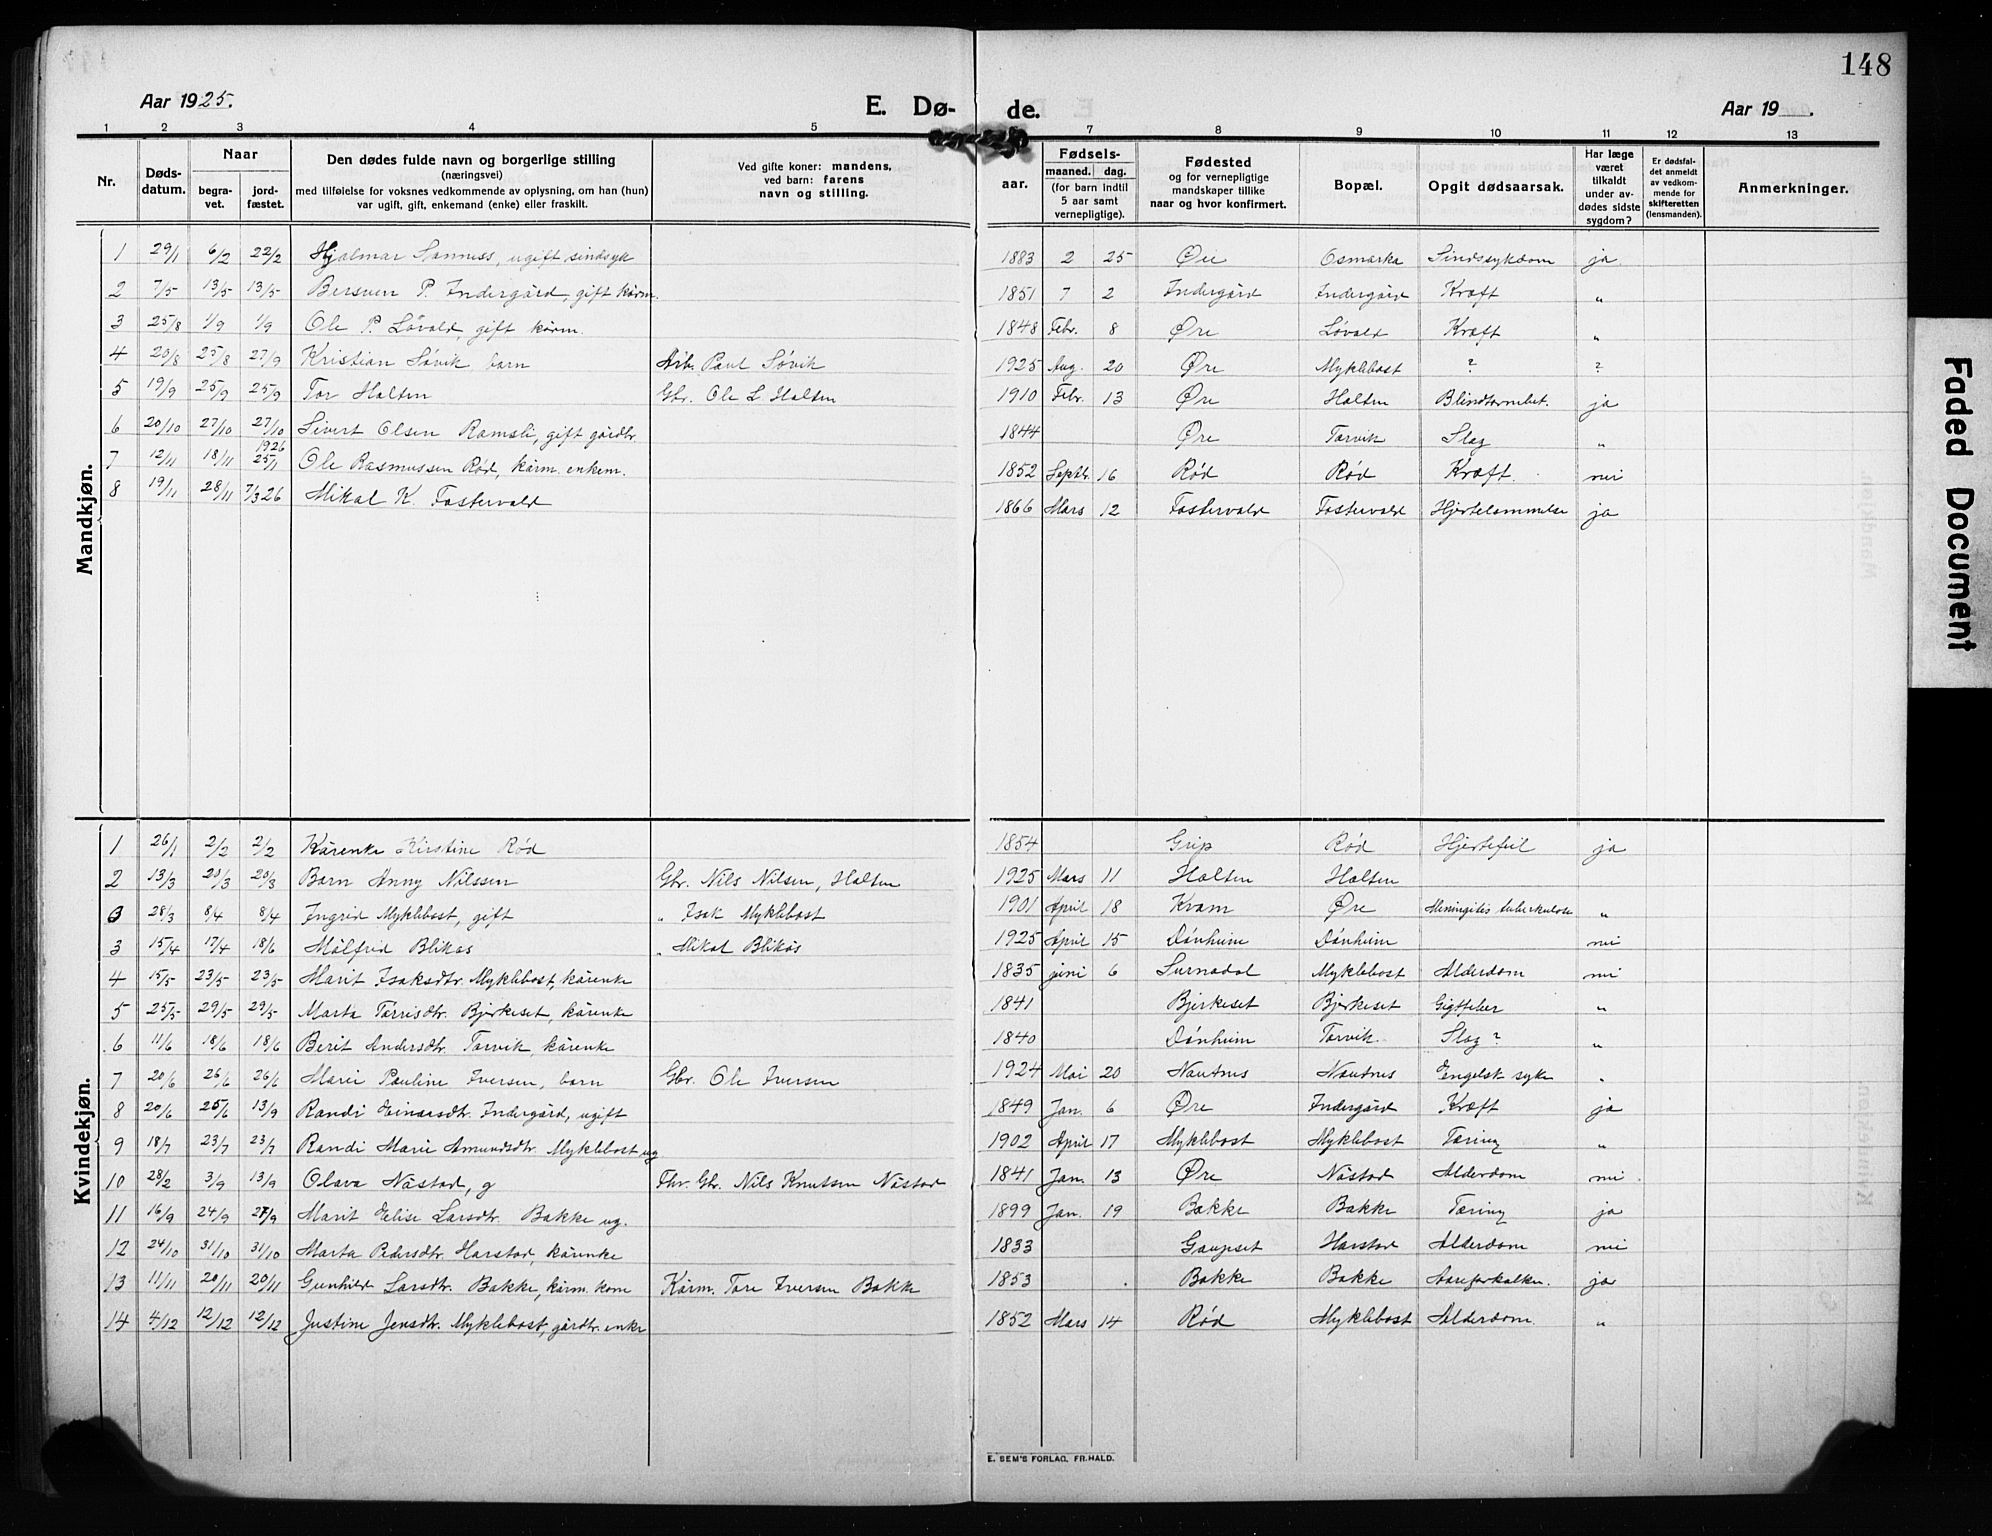 148
Aar 1925.
E. Dø-
de.
Aar 19 .
1 2 3 4 5 7 8 9 10 11 12 13
Nr.
Døds-
datum.
Naar
begra-
vet.
jord-
fæstet.
Den dødes fulde navn og borgerlige stilling
(næringsvei)
med tilføielse for voksnes vedkommende av oplysning, om han (hun)
var ugift, gift, enkemand (enke) eller fraskilt.
Ved gifte koner: mandens,
ved barn: farens
navn og stilling.
aar.
Fødsels-
maaned. dag.
(for barn indtil
5 aar samt
vernepligtige).
Fødested
og for vernepligtige
mandskaper tillike
naar og hvor konfirmert.
Bopæl.
Opgit dødsaarsak.
Har læge
været
tilkaldt
under av-
dødes sidste
sygdom?
Er dødsfal-
det anmeldt
av vedkom-
mende for
skifteretten
(lensmanden).
Anmerkninger.
Mandkjøn.
1 29/1 6/2 22/2 Hjalmar Sanness, ugift sindsyk 1883 2 25 Øre Osmarka Sindssykdom ja.
2 7/5 13/5 13/5 Bersven P. Indergård, gift kårm. 1851 7 2 Indergård Indergård Kræft "
3 25/8 1/9 1/9 Ole P. Løvald, gift kårm. 1848 Febr. 8 Øre Løvald Kræft "
4 20/8 25/8 27/9 Kristian Søvik, barn Arb. Paul Søvik 1925 Aug. 20 Øre Myklebost ? ?
5 19/9 25/9 25/9 Tor Holten Gbr. Ole L Holten 1910 Febr. 13 Øre Holten Blindtarmbet. ja
6 20/10 27/10 27/10 Sivert Olsen Ramsli, gift gårdbr. 1844 Øre Torvik Slag "
7 12/11 18/11 1926 25/1 Ole Rasmussen Rød, kårm. enkem. 1852 Septbr. 16 Rød Rød Kræft. nei
8 19/11 28/11 7/3 26 Mikal K. Fostervold 1866 Mars 12 Fostervold Fostervold Hjertelammelse ja
Kvindekjøn.
1 26/1 2/2 2/2 Kårenke Kirstine Rød 1854 Grip Rød Hjertefeil ja
2 13/3 20/3 20/3 Barn Anny Nilssen Gbr. Nils Nilsen, Holten 1925 Mars 11 Holten Holten
3 28/3 8/4 8/4 Ingrid Myklebost, gift " Isak Myklebost 1901 April 18 Kvam Øre Meningites tuberkulose "
3 15/4 17/4 18/6 Målfrid Blikås " Mikal Blikås 1925 April 15 Dønheim Dønheim nei
4 15/5 23/5 23/5 Marit Isaksdtr. Myklebost, kårenke 1835 juni 6 Surnadal Myklebost Alderdom nei
5 25/5 29/5 29/5 Marta Torrisdtr. Bjerkeset, kårenke 1841 Bjerkeset Bjerkeset Gigtfeber "
6 11/6 18/6 18/6 Berit Andersdtr. Torvik, kårenke 1840 Dønheim Torvik. Slag? "
7 20/6 26/6 26/6 Marie Pauline Iversen, barn Gbr. Ole Iversen 1924 Mai 20 Nautnes Nautnes Engelsk syke "
8 20/6 25/6 13/9 Randi Einarsdtr. Indergård, ugift 1849 Jan. 6 Øre Indergård Kræft ja
9 18/7 23/7 23/7 Randi Marie Amundsdtr. Myklebost ug 1902 April 17 Myklebost Myklebost Tæring "
10 28/2 3/9 13/9 Olava Nåstad, g Fhv. Gbr. Nils Knutsen Nåstad 1841 Jan. 13 Øre Nåstad Alderdom nei.
11 16/9 24/9 27/9 Marit Elise Larsdtr. Bakke ug. 1899 Jan. 19 Bakke Bakke Tæring ja
12 24/10 31/10 31/10 Marta Pedersdtr. Harstad, kårenke 1833 Gaupset Harstad Alderdom nei
13 11/11 20/11 20/11 Gunhild Larsdtr. Bakke, kårm. kone Kårm. Tore Iversen Bakke 1853 Bakke Bakke Aareforkalkn. ja
14 4/12 12/12 12/12 Justine Jensdtr. Myklebost, gårdbr. enke 1852 Mars 14 Rød Myklebost Alderdom. "
E. SEM'S FORLAG, FR.HALD.
Faded Document